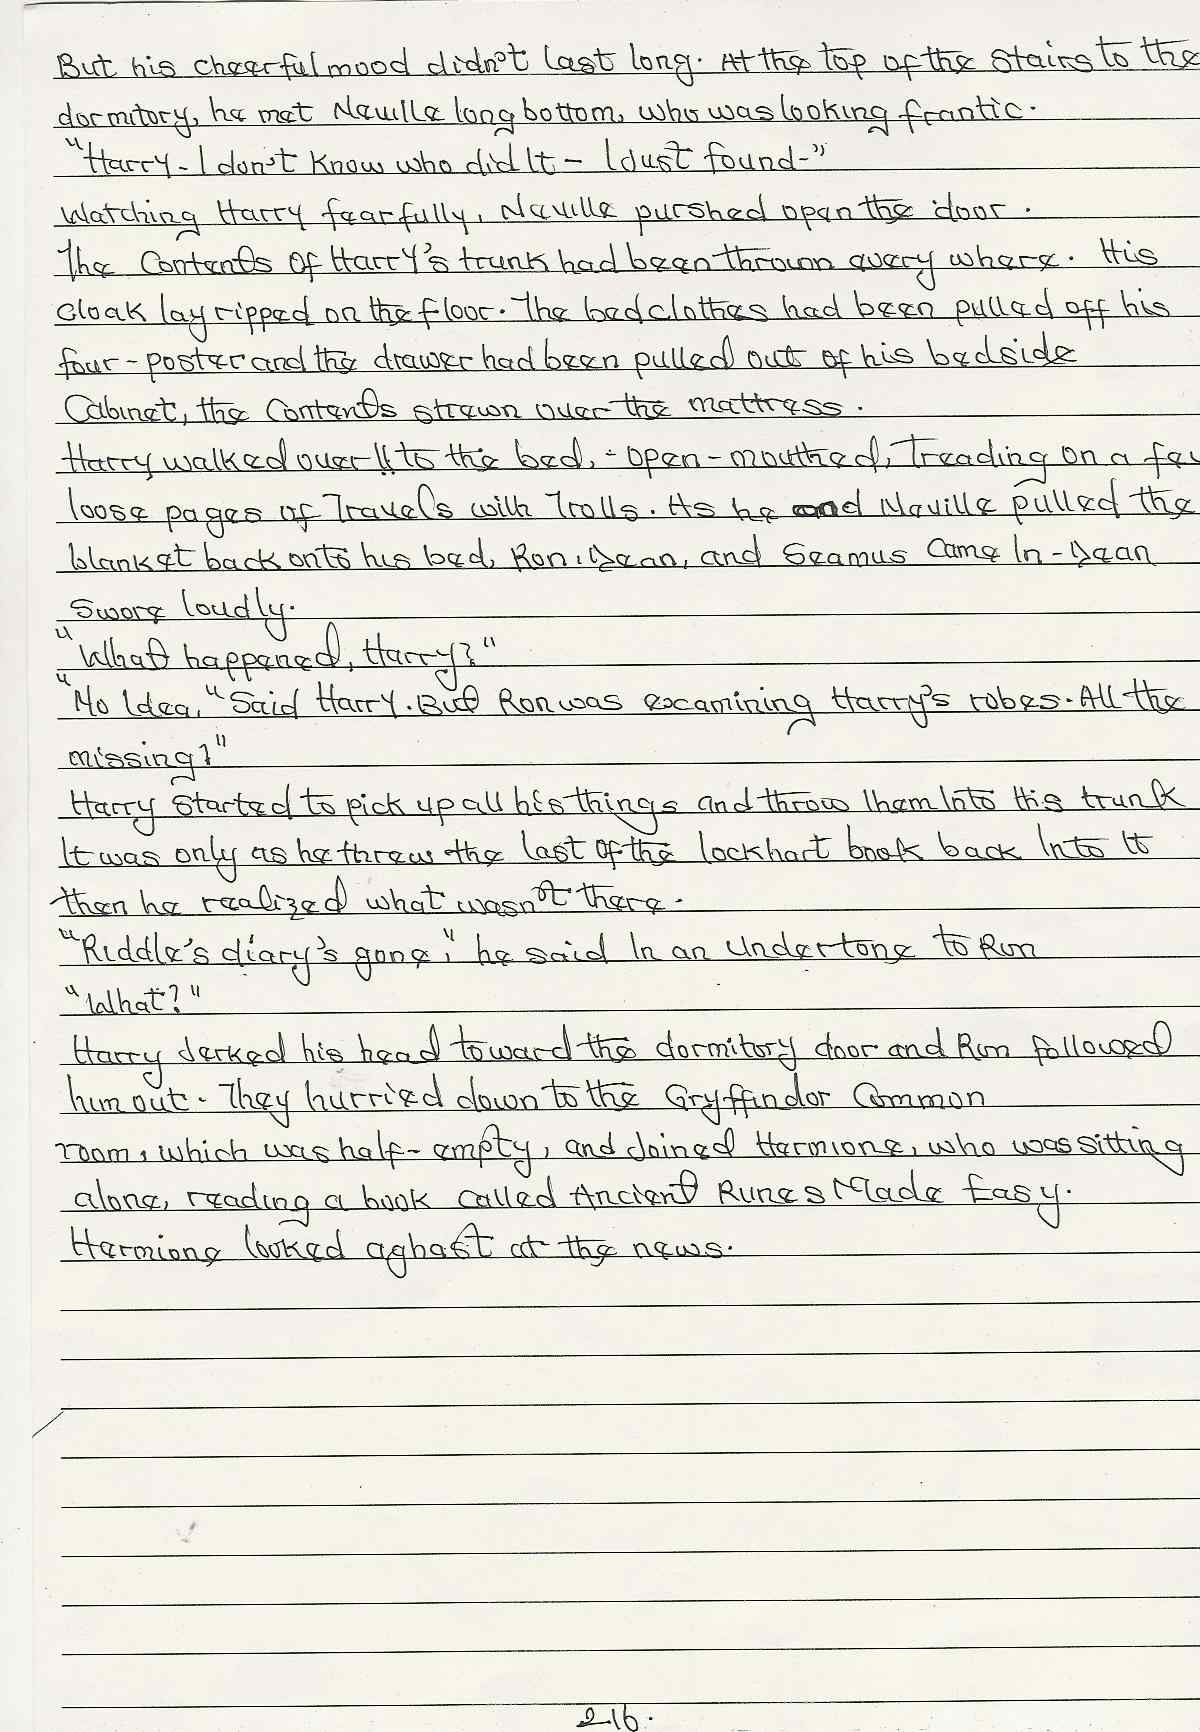 But his cheerful mood didn't last long. At the top of the stairs to the
dormitory, he met Neville longbottom, who was looking frantic.
"Harry - I don't know who did It - I Just found-"
Watching Harry fearfully, Neville purshed open the door.
The Contents Of Harry's trunk had been thrown every where. His
cloak lay ripped on the floor. The bedclothes had been pulled off his
four-poster and the drawer had been pulled out of his bedside
Cabinet, the Contents strewn over the mattress.
Harry walked over !! to the bed, - open-mouthed, Treading on a few
loose pages of Travels with Trolls. As he and Neville pulled the
blanket back onto his bed, Ron, Dean, and Seamus Came In - Dean
swore loudly.
"What happened, Harry?"
"No Idea, "Said Harry. But Ron was excamining Harry's robes. All the
missing?"
Harry started to pick up all his things and throw them Into His trunk
It was only as he threw the last Of the lockhart book back Into It
then he realized what wasn't there.
"Riddle's diary's gone," he said In an undertone to Ron
"What?"
Harry Jerked his head toward the dormitory door and Ron followed
him out. They hurried down to the Gryffindor Common
room, which was half-empty, and Joined Hermione, who was sitting
alone, reading a book called Ancient Runes Made Easy.
Hermione looked aghast at the news.
216.